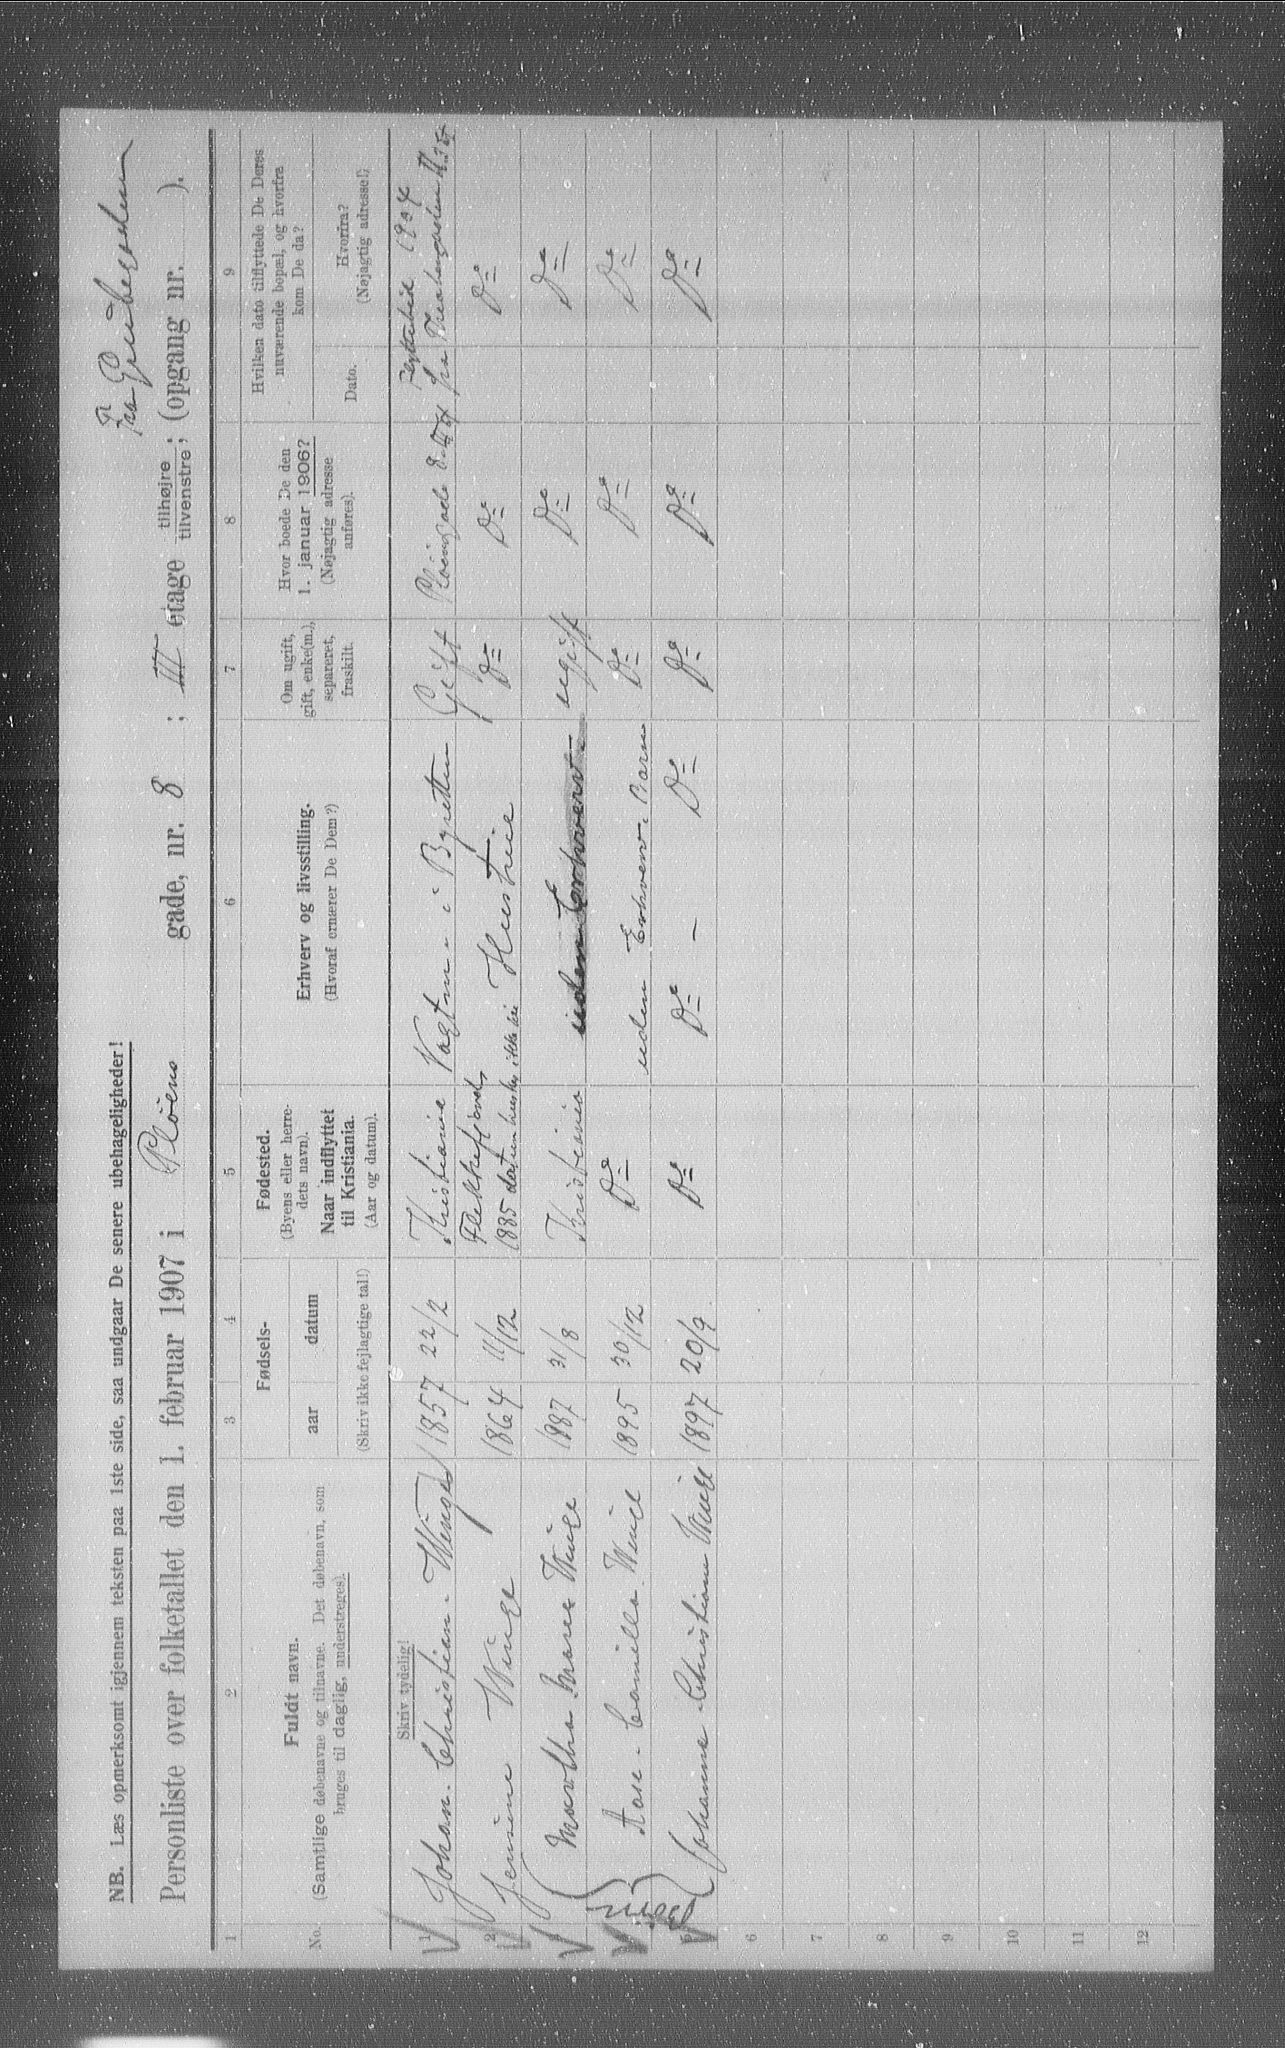 NB. Læs opmerksomt igjennem teksten paa 1ste side, saa undgaar De senere ubehageligheder!
Personliste over folketallet den 1. februar 1907 i Pløens gade, nr. 8 ; III etage tilhøjre tilvenstre; (opgang nr. ).
1 2 3 4 5 6 7 8 9
No.
Fuldt navn.
(Samtlige døbenavne og tilnavne. Det døbenavn, som
bruges til daglig, understreges).
Fødsels-
aar
datum
(Skriv ikke fejlagtige tal!)
Fødested.
(Byens eller herre-
dets navn).
Naar indflyttet
til Kristiania.
(Aar og datum).
Erhverv og livsstilling.
(Hvoraf ernærer De Dem?)
Om ugift,
gift, enke(m.),
separeret,
fraskilt.
Hvor boede De den
1. januar 1906?
(Nøjagtig adresse
anføres).
Hvilken dato tilflyttede De Deres
nuværende bopæl, og hvorfra
kom De da?
Dato.
Hvorfra?
(Nøjagtig adresse!)
Skriv tydelig!
1 Johan Christian Winge 1857 22/2 Kristiania Vagtm. i Byretten Gift Pløensgade 8 Flyttetid 1904
2 Jensine Winge 1864 11/12 Flekkefjord 1885 datum huskes ikke Hustrue Do Do Do
3 Martha Marie Winge 1887 31/8 Kristiania uden Erhverv ugift Do Do
4 Aase Camilla Winge 1895 30/12 Do uden Erhverv. Barn Do Do Do
5 Johanne Christiane Winge 1897 20/9 Do Do - Do Do Do Do
6
7
8
9
10
11
12